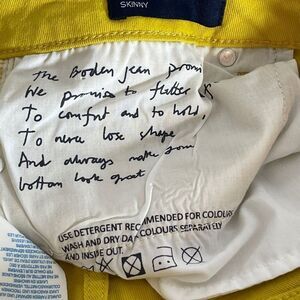 SKINNY
The Boden jean promi
We promise to flatter &
To comfort and to hold,
To never lose shape
And always make your
bottom look great
USE DETERGENT RECOMMENDED FOR COLOURS
WASH AND DRY DARK COLOURS SEPARATELY
AND INSIDE OUT.